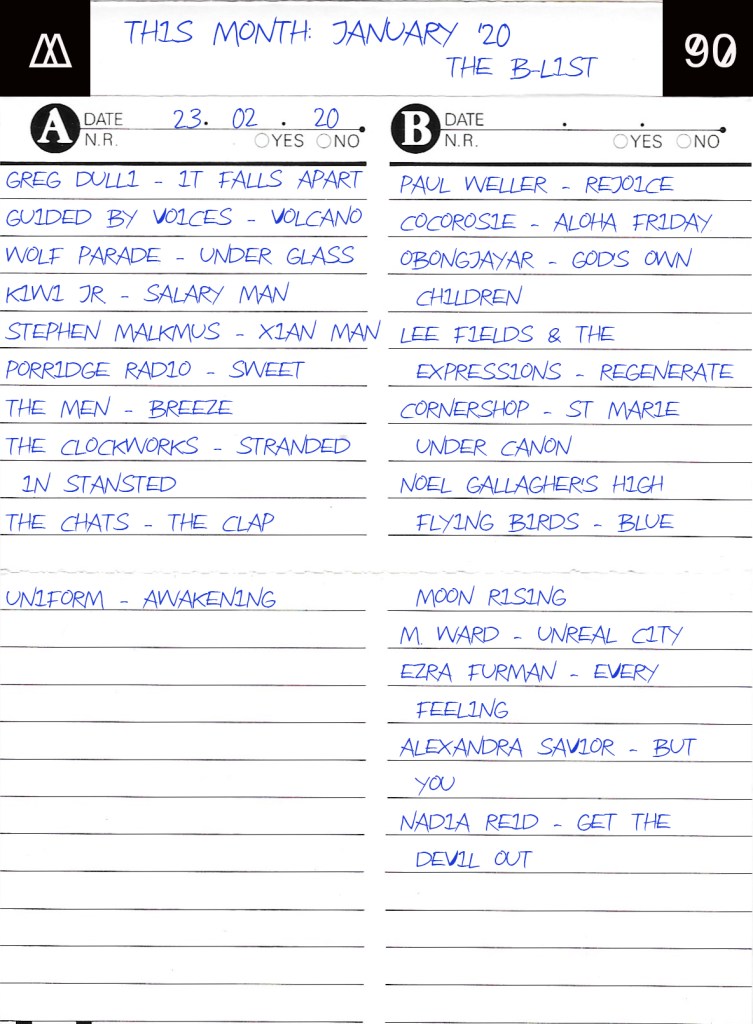 THIS MONTH: JANUARY '20
THE B-LIST
90
A DATE 23. 02. 20
N.R. YES NO
GREG DULLI - IT FALLS APART
GUIDED BY VOICES - VOLCANO
WOLF PARADE - UNDER GLASS
KIWI JR - SALARY MAN
STEPHEN MALKMUS - XIAN MAN
PORRIDGE RADIO - SWEET
THE MEN - BREEZE
THE CLOCKWORKS - STRANDED
IN STANSTED
THE CHATS - THE CLAP
UNIFORM - AWAKENING
B DATE . .
N.R. YES NO
PAUL WELLER - REJOICE
COCOROSIE - ALOHA FRIDAY
OBONGJAYAR - GOD'S OWN
CHILDREN
LEE FIELDS & THE
EXPRESSIONS - REGENERATE
CORNERSHOP - ST MARIE
UNDER CANON
NOEL GALLAGHER'S HIGH
FLYING BIRDS - BLUE
MOON RISING
M. WARD - UNREAL CITY
EZRA FURMAN - EVERY
FEELING
ALEXANDRA SAVIOR - BUT
YOU
NADIA REID - GET THE
DEVIL OUT